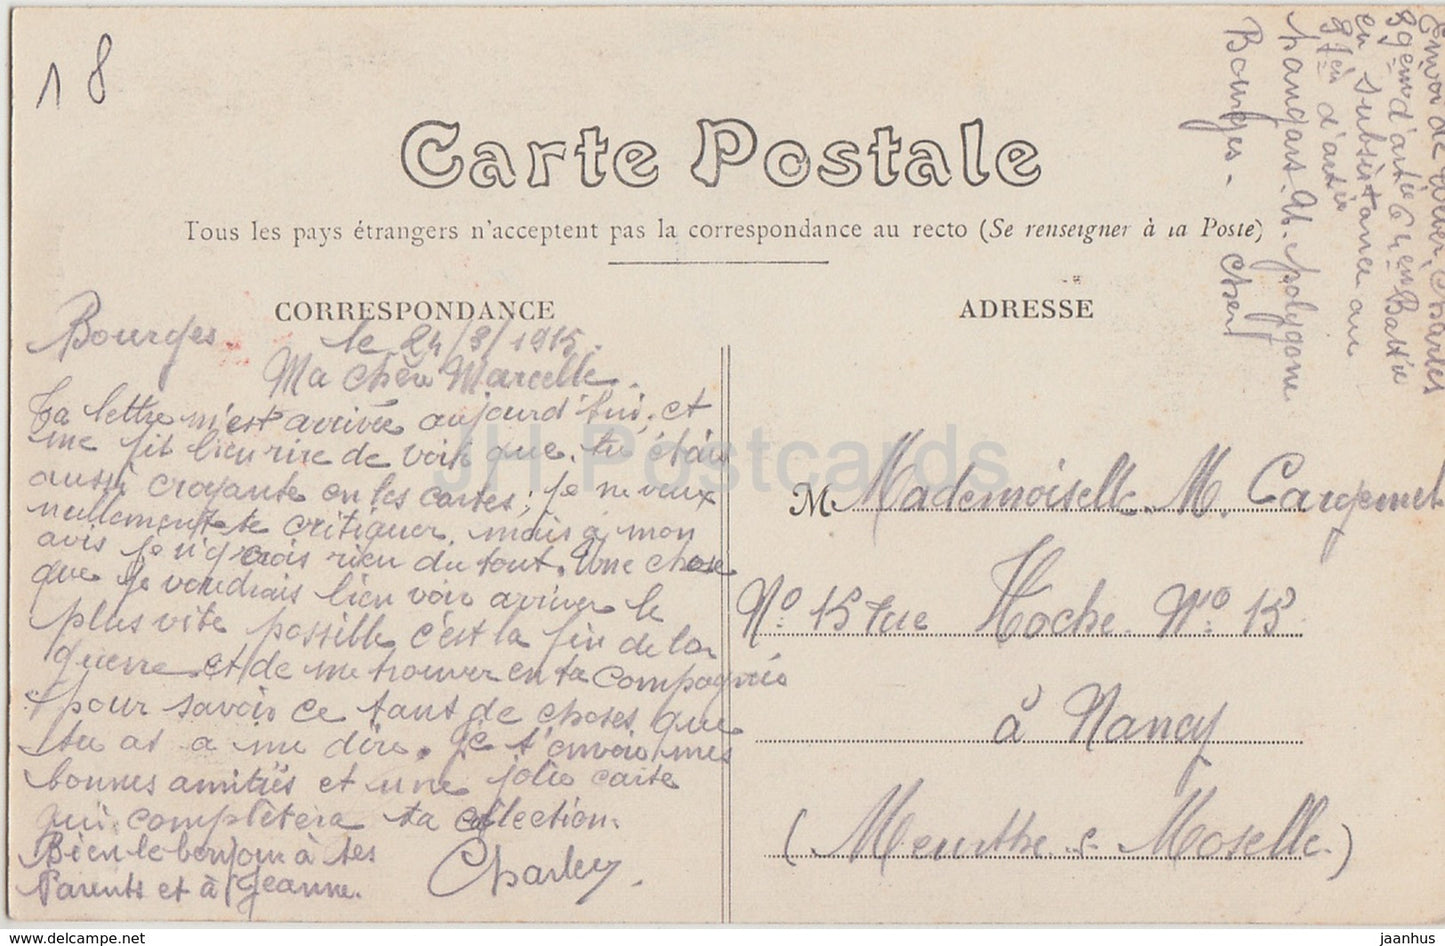 18
Carte Postale
Tous les pays étrangers n'acceptent pas la correspondance au recto (Se renseigner à la Poste)
CORRESPONDANCE
Bourges le 24/3/1915.
Ma chère Marcelle.
Ta lettre m'est arrivée aujourd'hui, et
me fit bien rire de voir que tu étais
aussi croyante en les cartes; je ne veux
nullement te critiquer, mais à mon
avis je n'y crois rien du tout. Une chose
que je voudrais bien voir arriver le
plus vite possible c'est la fin de la
guerre et de me trouver en ta compagnie
pour savoir ce tant de choses que
tu as a me dire. Je t'envoie mes
bonnes amitiés et une jolie carte
qui complètera ta collection.
Bien le bonjour à tes
Parents et à Jeanne.
Charley.
ADRESSE
M Mademoiselle M.
No 15 rue Hoche No 15
à Nancy
(Meurthe e Moselle.)
Envoi de Charles
en subsistance au
d'artie
hangars 91 polygone
Bourges. Cher
JH Postcards
www.delcampe.net
jaanhus